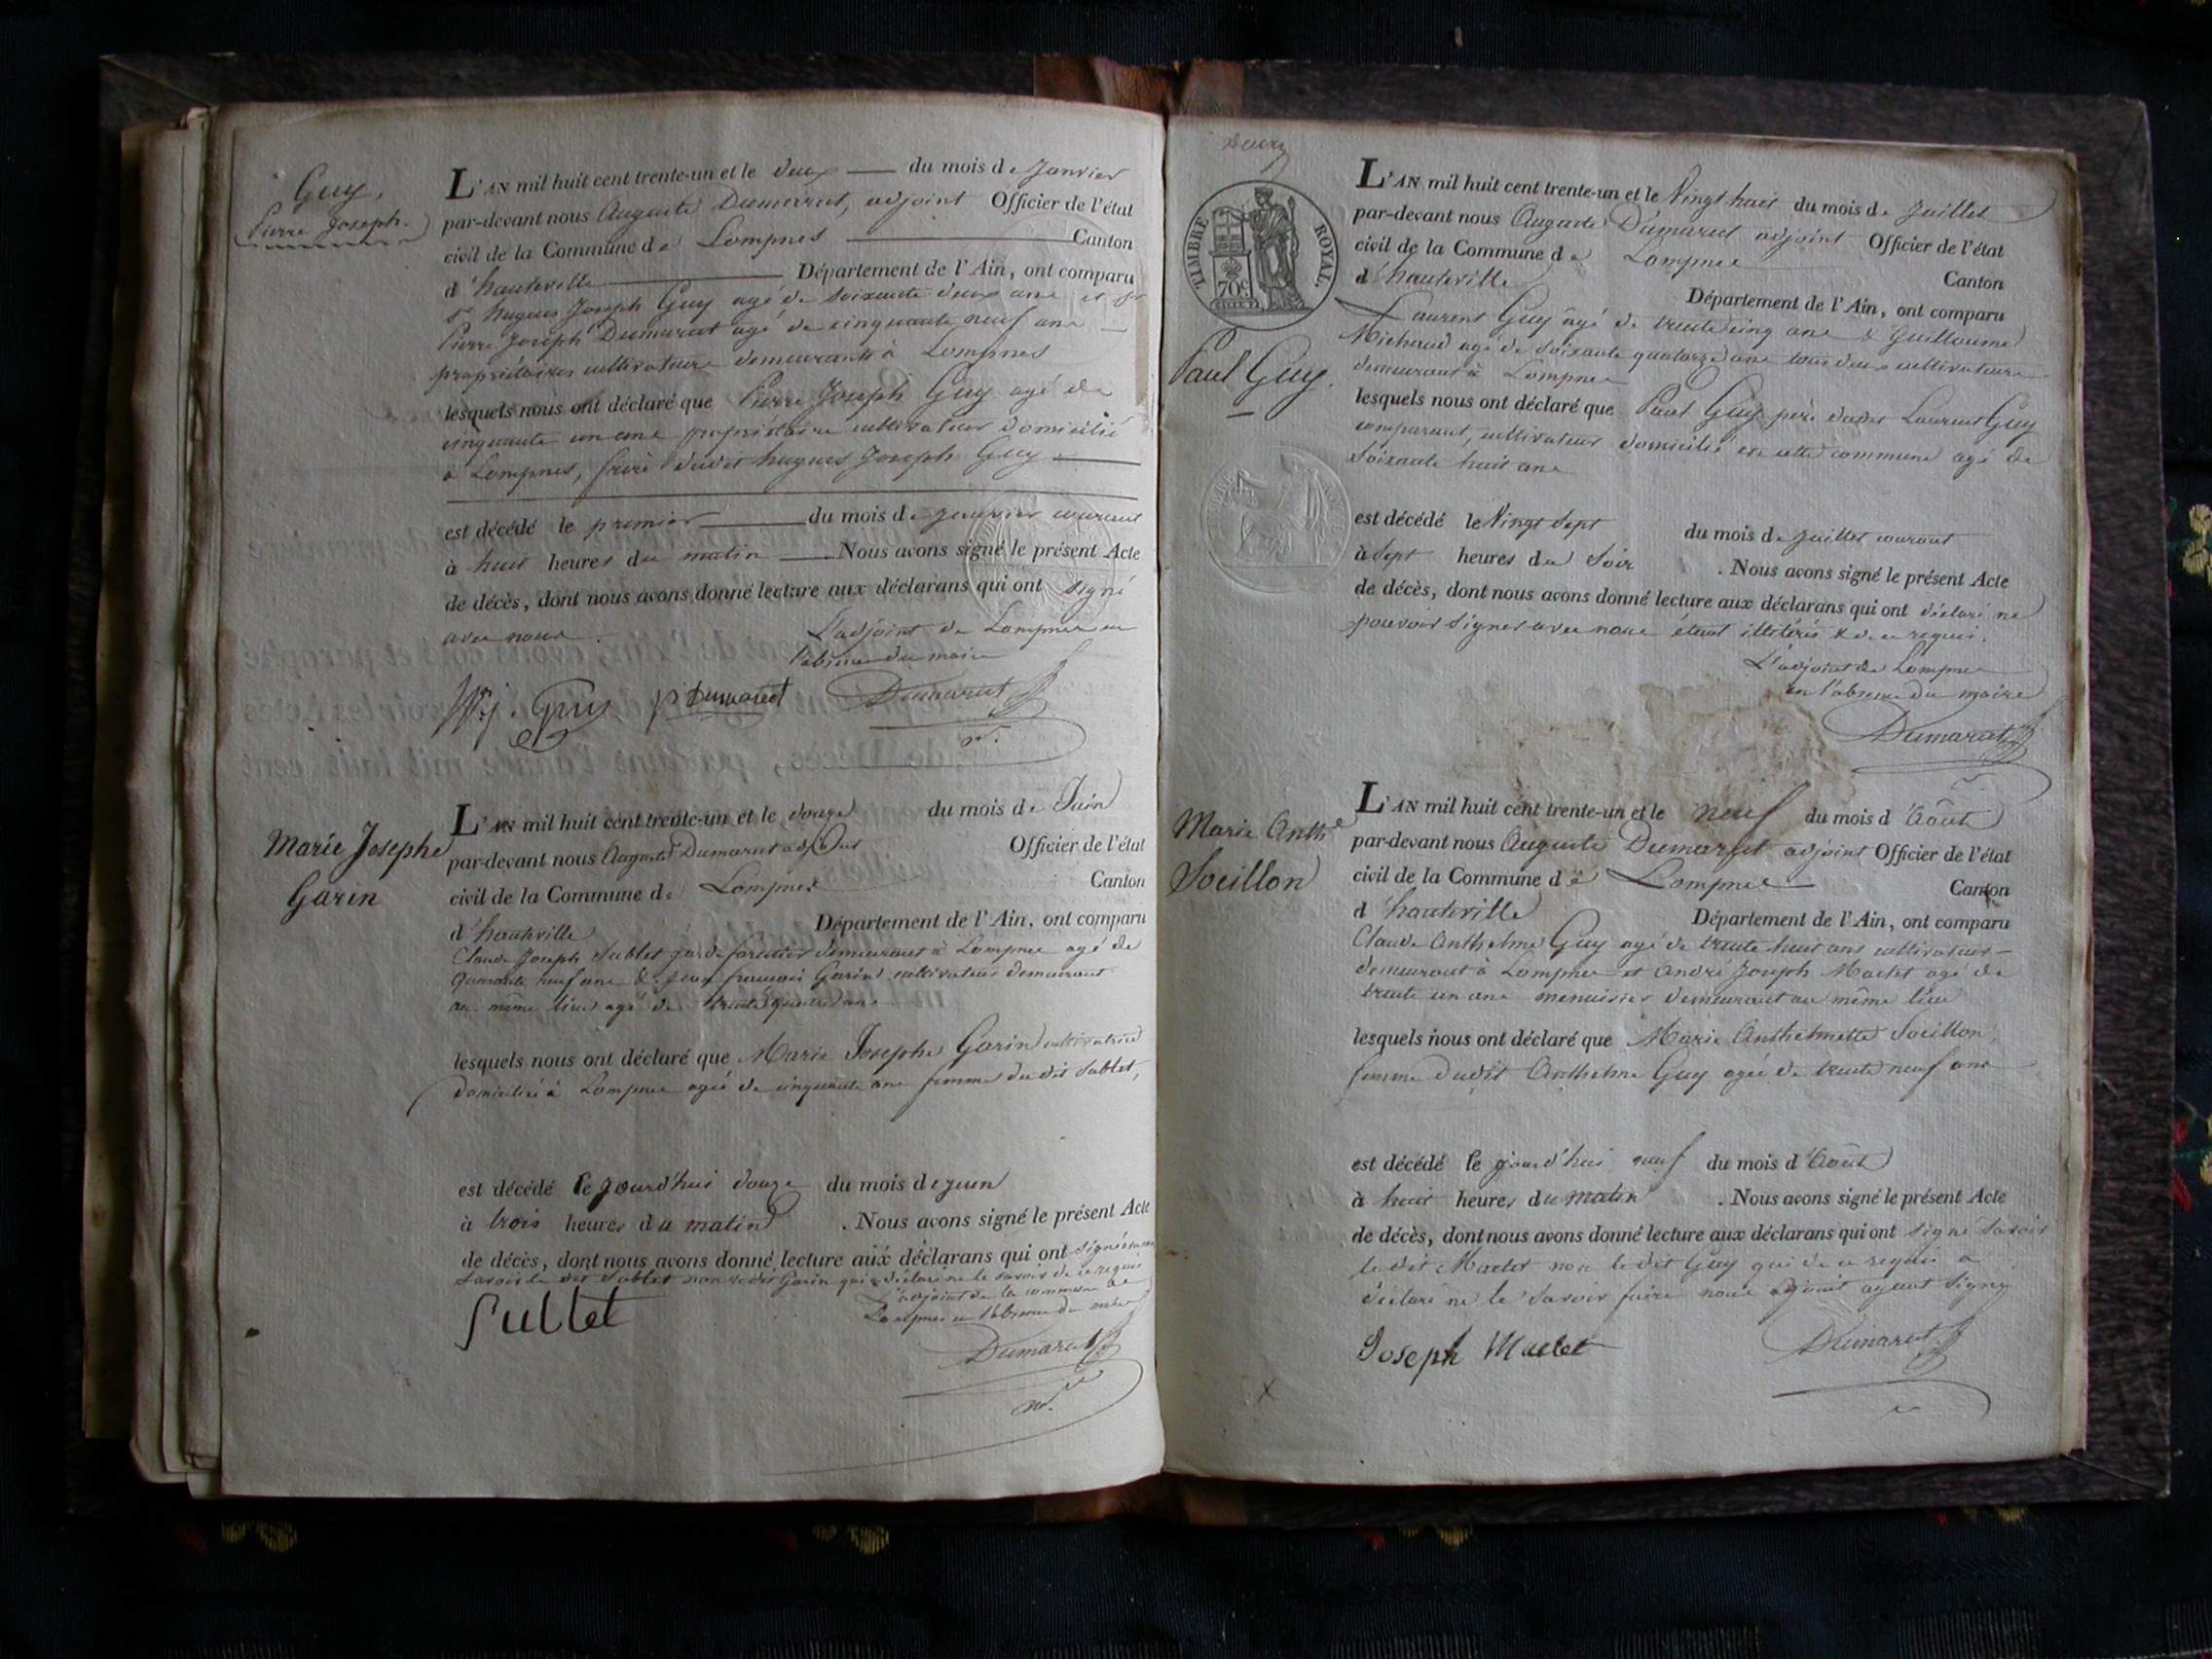 Guy,
Pierre Joseph.
L'AN mil huit cent trente-un et le deux du mois de Janvier
par-devant nous Auguste Dumarest, adjoint Officier de l'état
civil de la Commune de Lompnes Canton
d'hauteville Département de l'Ain, ont comparu
sr hugues Joseph Guy agé de soixante deux ans et sr
Pierre Joseph Dumarest agé de cinquante neuf ans
propriétaires cultivateurs demeurants à Lompnes
lesquels nous ont déclaré que Pierre Joseph Guy agé de
cinquante un ans propriétaire cultivateur domicilié
à Lompnes, frère dudit hugues Joseph Guy
est décédé le premier du mois de janvier courant
à huit heures du matin Nous avons signé le présent Acte
de décès, dont nous avons donné lecture aux déclarans qui ont signé
avec nous. L'adjoint de Lompnes en
l'absence du maire
Guy Dumarest Dumarest
Marie Josephe
Garin
L'AN mil huit cent trente-un et le douze du mois de Juin
par-devant nous Auguste Dumarest adjoint Officier de l'état
civil de la Commune de Lompnes Canton
d'hauteville Département de l'Ain, ont comparu
Claude Joseph Sublet garde forestier demeurant à Lompnes agé de
Quarante neuf ans & jean francois Garin cultivateur demeurant
au même lieu agé de trente quatre ans
lesquels nous ont déclaré que Marie Josephe Garin cultivatrice
domiciliée à Lompnes agée de cinquante ans femme du dit Sublet,
est décédé le jourd'hui douze du mois de juin
à trois heures du matin . Nous avons signé le présent Acte
de décès, dont nous avons donné lecture aux déclarans qui ont signé
savoir le dit Sublet non le dit Garin qui a déclaré ne le savoir de ce requis
L'adjoint de la commune de
Lompnes en l'absence du maire
Sublet
Dumarest
TIMBRE ROYAL.
70c
Paul Guy.
L'AN mil huit cent trente-un et le Vingt huit du mois de Juillet
par-devant nous Auguste Dumarest adjoint Officier de l'état
civil de la Commune de Lompnes Canton
d'hauteville Département de l'Ain, ont comparu
Laurent Guy agé de trente cinq ans & Guillaume
Michaud agé de soixante quatorze ans tous deux cultivateurs
demeurant à Lompnes
lesquels nous ont déclaré que Paul Guy père dudit Laurent Guy
comparant, cultivateur domicilié en cette commune agé de
soixante huit ans
est décédé le Vingt sept du mois de juillet courant
à sept heures du soir . Nous avons signé le présent Acte
de décès, dont nous avons donné lecture aux déclarans qui ont déclaré ne
pouvoir signer avec nous étant illitérés & de ce requis.
L'adjoint de Lompnes
en l'absence du maire
Dumarest
Marie Anthe
Socillon
L'AN mil huit cent trente-un et le neuf du mois d'Août
par-devant nous Auguste Dumarest adjoint Officier de l'état
civil de la Commune de Lompnes Canton
d'hauteville Département de l'Ain, ont comparu
Claude Anthelme Guy agé de trente huit ans cultivateur
demeurant à Lompnes et André Joseph Maclet agé de
trente un ans menuisier demeurant au même lieu
lesquels nous ont déclaré que Marie Anthelmette Socillon
femme dudit Anthelme Guy agée de trente neuf ans
est décédé le jourd'hui neuf du mois d'Août
à huit heures du matin . Nous avons signé le présent Acte
de décès, dont nous avons donné lecture aux déclarans qui ont signé savoir
le dit Maclet non le dit Guy qui de ce requis a
déclaré ne le savoir faire nous adjoint ayant signé
Joseph Maclet Dumarest